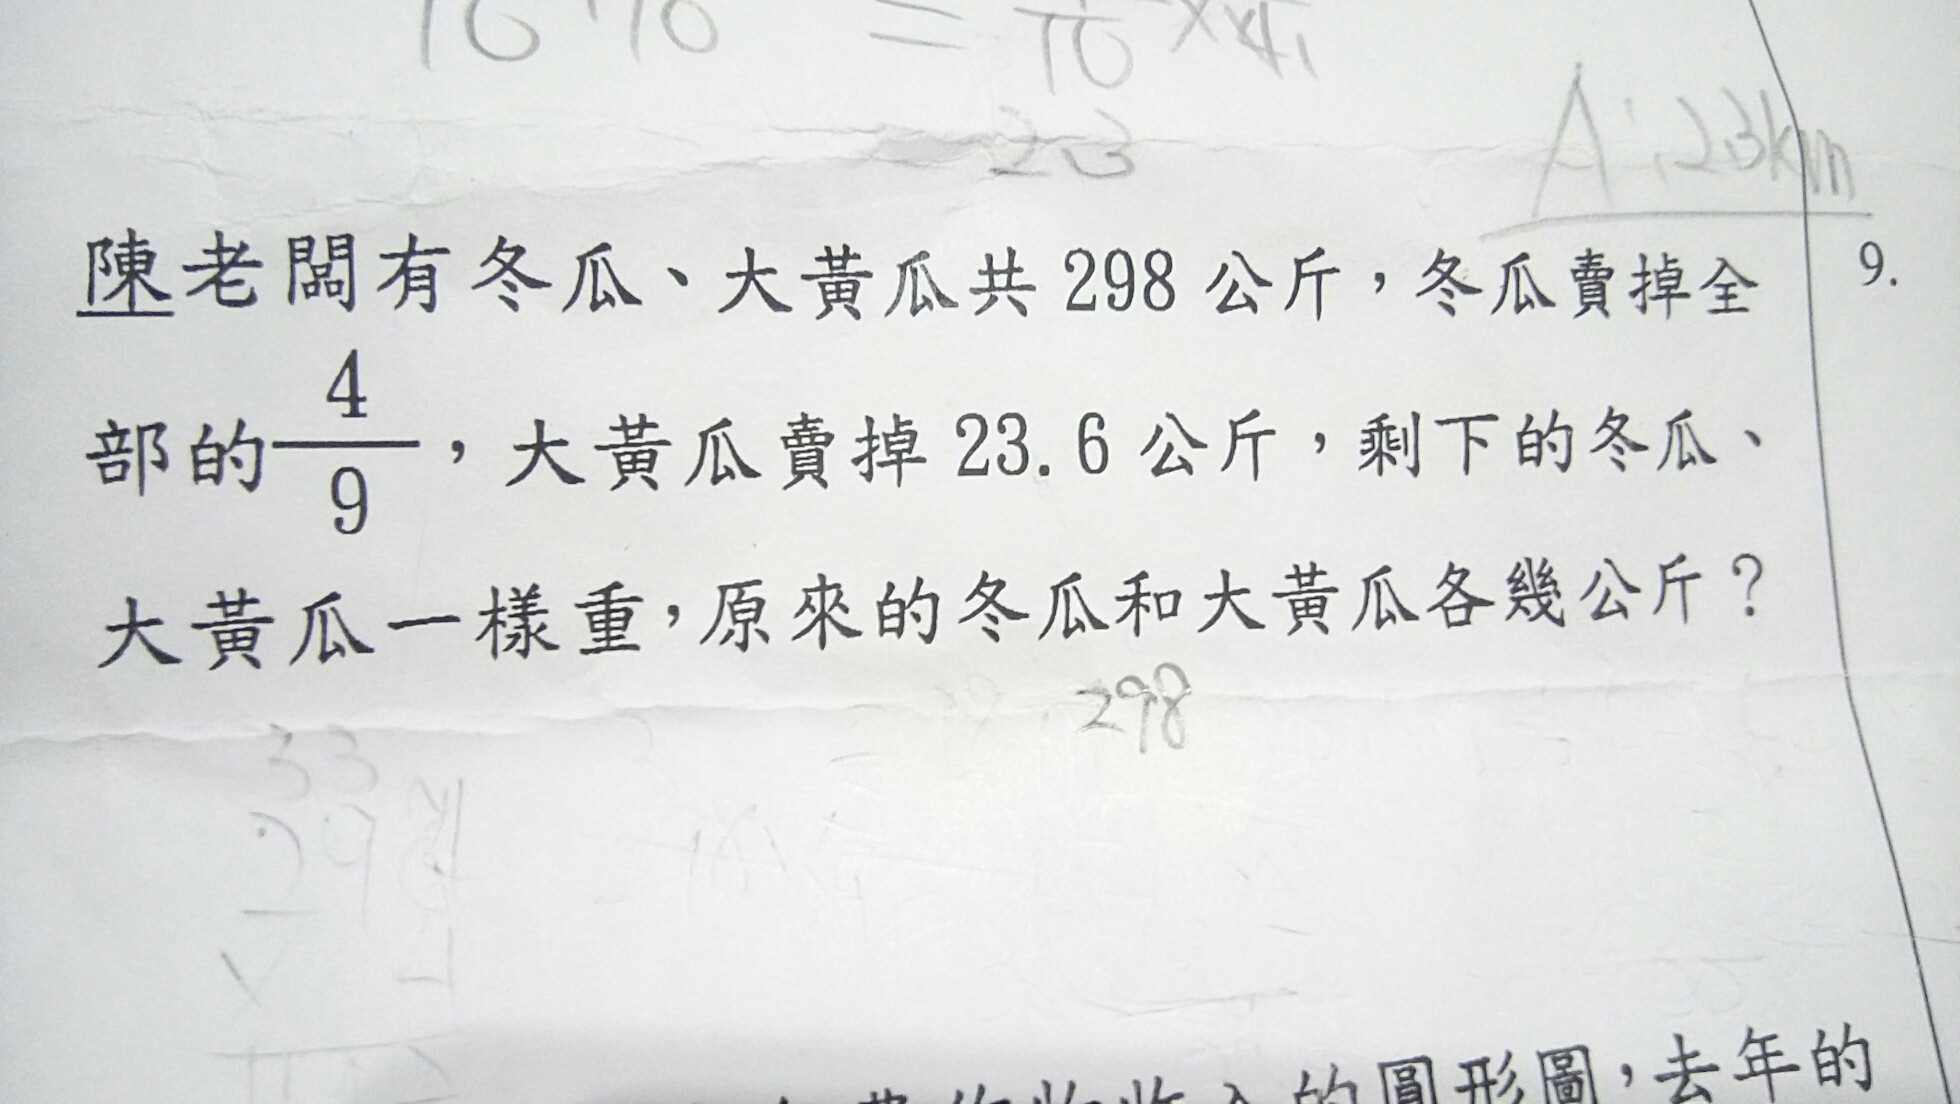 23
A:23km
陳老闆有冬瓜、大黃瓜共 298 公斤，冬瓜賣掉全
9.
部的4/9，大黃瓜賣掉 23.6 公斤，剩下的冬瓜、
大黃瓜一樣重，原來的冬瓜和大黃瓜各幾公斤？
298
的圓形圖，去年的